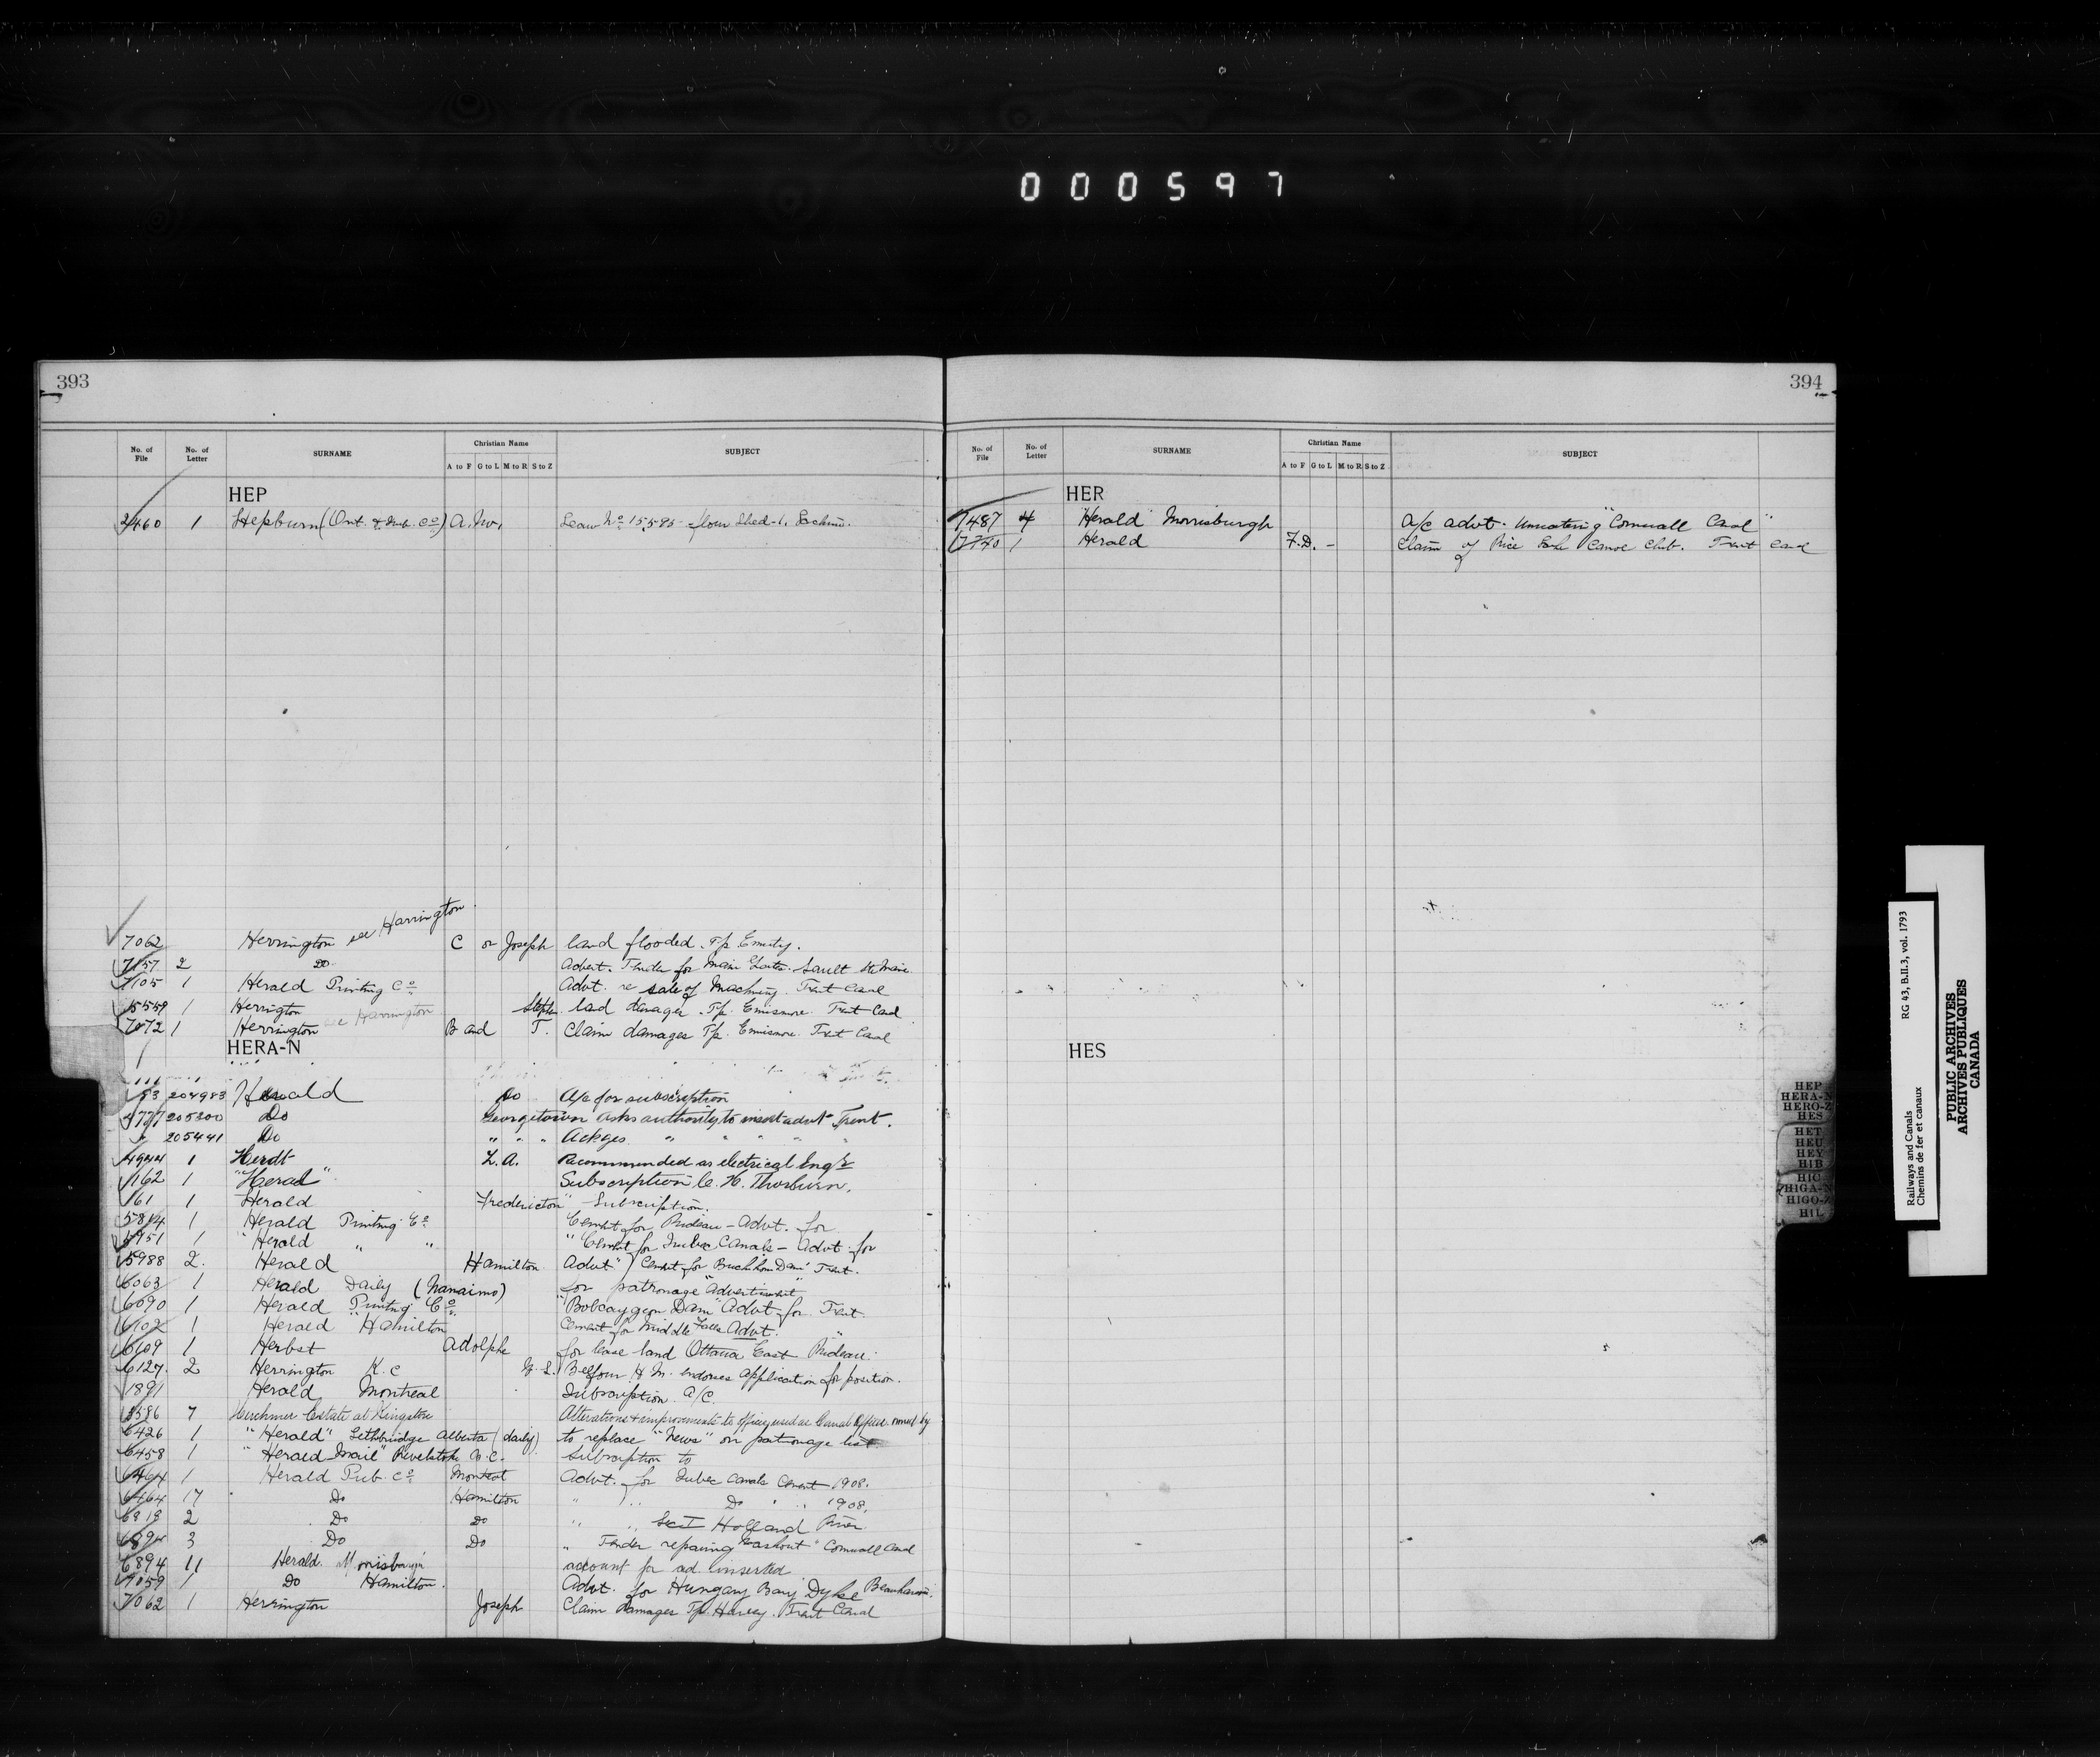 000597
393
No. of File No. of Letter SURNAME Christian Name A to F G to L M to R S to Z SUBJECT
HEP
2460 1 Hepburn (Ont. & Que. Co) A. Wm. Lease No 15595 - flour Shed - L. Lachine.
7062 Herrington see Harrington C or Joseph land flooded. Tp Emily.
7157 2 Do Advert. Tender for Main Gates. Sault Ste Marie
7105 1 Herald Printing Co Advt. re sale of Machiny. Trent Canal
5559 1 Herrington see Harrington Stephen land damages. Tp. Ennismore. Trent Canal
7072 1 Herrington B and T. Claim damages Tp. Ennismore. Trent Canal
HERA-N
153 204983 Herald Do A/c for subscription
4777 205300 Do Georgetown asks authority to insert advt Trent.
" 205441 Do " " " Ackges " " " " "
4944 1 Herdt L.A. Recommended as electrical Engr
162 1 "Herald" Subscription C. H. Thorburn.
161 1 Herald Fredericton Subscription.
5814 1 Herald Printing Co Cement for Rideau - Advt. for
5951 1 " Herald " " " Cement for Quebec Canals - Advt for
5988 2. Herald Hamilton Advt Cement for Buckhorn Dam Trent.
6063 1 Herald Daily (Nanaimo) for patronage "Advertisment"
6090 1 Herald Printing Co. "Bobcaygeon Dam" Advt for Trent.
6102 1 Herald "Hamilton Cement for Middle Falls Advt. "
6109 1 Herbst Adolphe for lease land Ottawa East Rideau.
6127. 2 Herrington K.C Belfour H M. endorses application for position.
1891 Herald Montreal Subscription A/C.
3586 7 Herchmer Estate at Kingston Alterations & improvements to offices used as Canal Offices owned by
6426 1 "Herald" Lethbridge Alberta (daily) to replace "News" on patronage list
6458 1 "Herald Mail" Revelstoke B.C. subscription to
6464 1 Herald Pub. Co Montreal Advt. for Quebec Canals Cement 1908.
6464 17 Do Hamilton " " Do " " 1908.
6818 2 Do Do " " Sec I Holland River
6894 3 Do Do " Tender repairing "Washout" Cornwall Canal
6894 11 Herald. Morrisburgh account for ad. inserted
7059 1 Do Hamilton. Advt. for Hungary Bay Dyke Beauharnois.
7062 1 Herrington Joseph Claim damages Tp. Harvey. Trent Canal
394
No. of File No. of Letter SURNAME Christian Name A to F G to L M to R S to Z SUBJECT
HER
7487 4 "Herald" Morrisburgh A/c advt. Unwatering "Cornwall Canal"
7740 1 Herald F.D. - Claim of Rice Lake Canoe Club. Trent Canal
HES
HEP
HERA-N
HERO-Z
HES
HET
HEU
HEY
HIB
HIC
HIGA-N
HIGO-Z
HIL
Railways and Canals RG 43, B.II.3, vol. 1793
Chemins de fer et canaux
PUBLIC ARCHIVES
ARCHIVES PUBLIQUES
CANADA